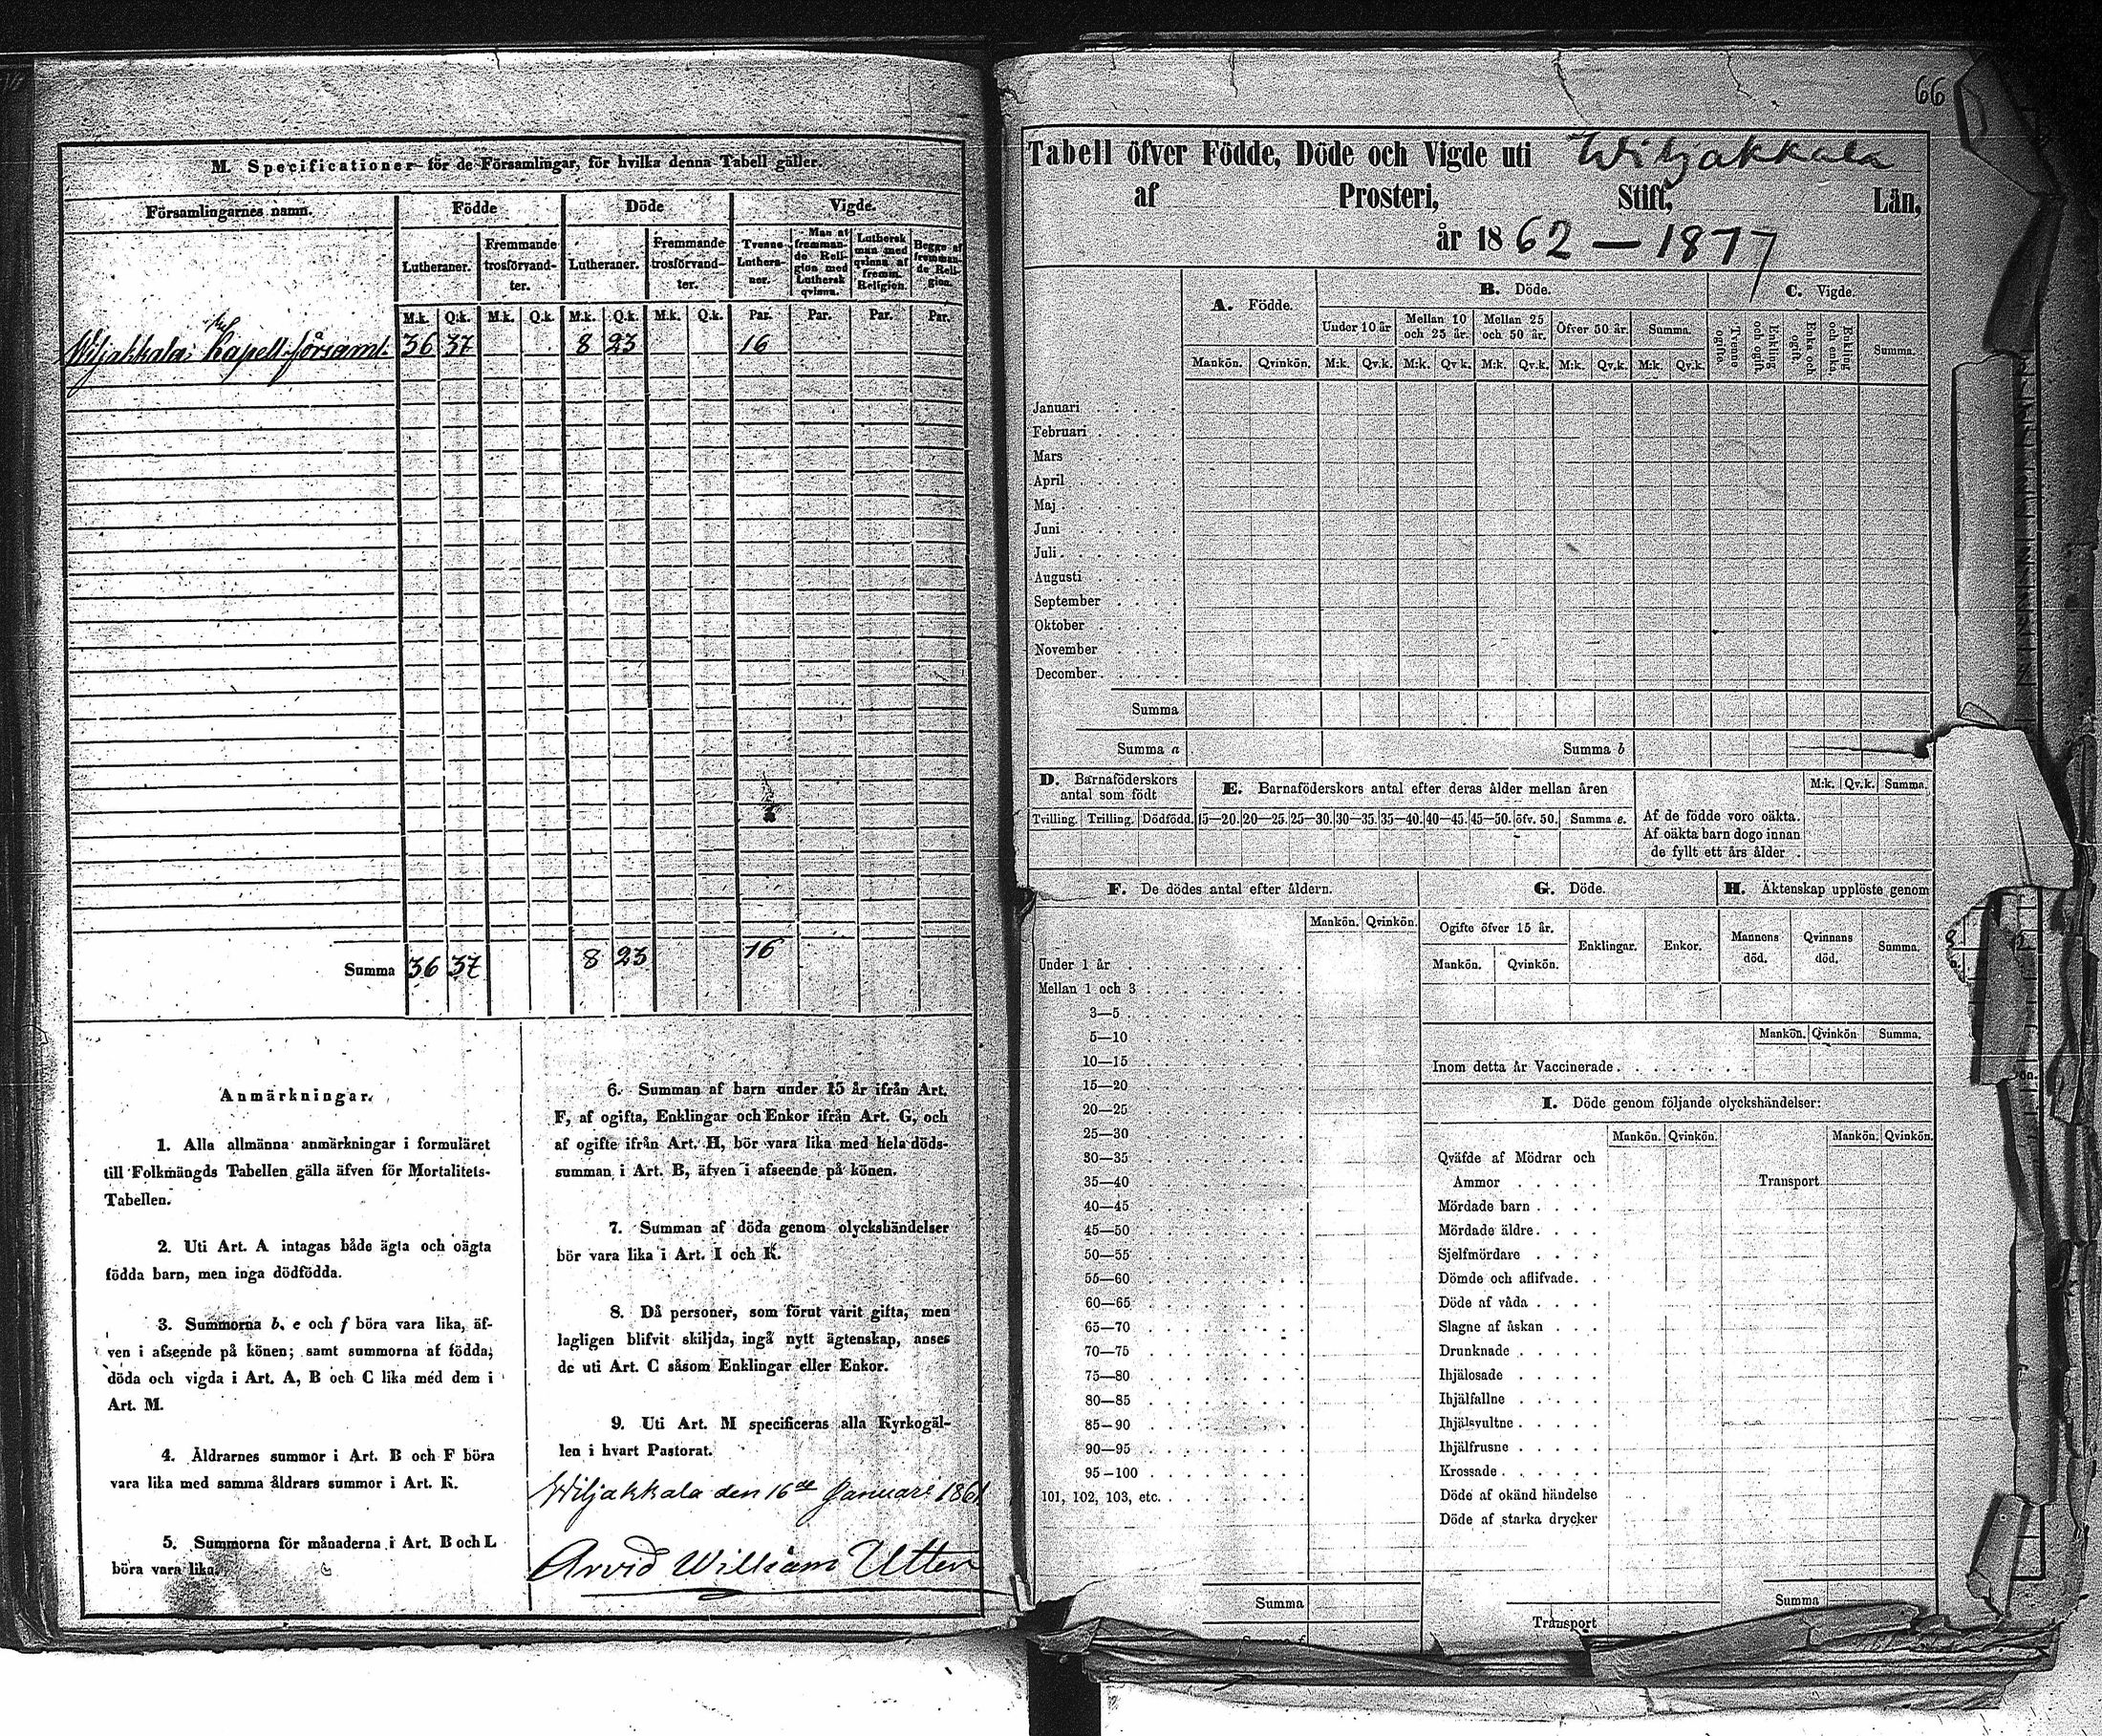 M. Specificationer för de Församlingar, för hvilka denna Tabell gäller.
Församlingarnes namn. Födde Döde Vigde.
Lutheraner. Fremmande trosförvandter. Lutheraner. Fremmande trosförvandter. Tvenne Lutheraner. Man af fremmande Religion med Luthersk qvinna. Luthersk man med qvinna af fremm. Religion. Begge af fremmande Religion.
M.k. Q.k. M.k. Q.k. M.k. Q.k. M.k. Q.k. Par. Par. Par. Par.
Wiljakkala Kapell församl. 36 37 8 23 16
Summa 36 37 8 23 16
Anmärkningar.
1. Alla allmänna anmärkningar i formuläret
till Folkmängds Tabellen gälla äfven för Mortalitets-
Tabellen.
2. Uti Art. A intagas både ägta och oägta
födda barn, men inga dödfödda.
3. Summorna b, e och f böra vara lika, äf-
ven i afseende på könen; samt summorna af födda,
döda och vigda i Art. A, B och C lika med dem i
Art. M.
4. Åldrarnes summor i Art. B och F böra
vara lika med samma åldrars summor i Art. K.
5. Summorna för månaderna i Art. B och L
böra vara lika.
6. Summan af barn under 15 år ifrån Art.
F, af ogifta, Enklingar och Enkor ifrån Art. G, och
af ogifte ifrån Art. H, bör vara lika med hela döds-
summan i Art. B, äfven i afseende på könen.
7. Summan af döda genom olyckshändelser
bör vara lika i Art. I och K.
8. Då personer, som förut varit gifta, men
lagligen blifvit skiljda, ingå nytt ägtenskap, anses
de uti Art. C såsom Enklingar eller Enkor.
9. Uti Art. M specificeras alla Kyrkogäl-
len i hvart Pastorat.
Wiljakkala den 16de Januari 1861
Arvid William Utter
66
Tabell öfver Födde, Döde och Vigde uti Wiljakkala
af Prosteri, Stift, Län,
år 1862 — 1877
A. Födde. B. Döde. C. Vigde.
Under 10 år Mellan 10 och 25 år. Mellan 25 och 50 år. Öfver 50 år. Summa. Tvenne ogifte. Enkling och ogift. Enka och ogift. Enkling och enka. Summa.
Mankön. Qvinkön. M:k. Qv.k. M:k. Qv.k. M:k. Qv.k. M:k. Qv.k. M:k. Qv.k.
Januari
Februari
Mars
April
Maj
Juni
Juli
Augusti
September
Oktober
November
December
Summa
Summa a Summa b
D. Barnaföderskors antal som födt
Tvilling. Trilling. Dödfödd.
E. Barnaföderskors antal efter deras ålder mellan åren
15—20. 20—25. 25—30. 30—35. 35—40. 40—45. 45—50. öfv. 50. Summa e.
M:k. Qv.k. Summa.
Af de födde voro oäkta.
Af oäkta barn dogo innan
de fyllt ett års ålder
F. De dödes antal efter åldern.
Mankön. Qvinkön.
Under 1 år
Mellan 1 och 3
3—5
5—10
10—15
15—20
20—25
25—30
30—35
35—40
40—45
45—50
50—55
55—60
60—65
65—70
70—75
75—80
80—85
85—90
90—95
95—100
101, 102, 103, etc.
Summa
G. Döde.
Ogifte öfver 15 år. Enklingar. Enkor.
Mankön. Qvinkön.
H. Äktenskap upplöste genom
Mannens död. Qvinnans död. Summa.
Mankön. Qvinkön Summa.
Inom detta år Vaccinerade
I. Döde genom följande olyckshändelser:
Mankön. Qvinkön. Mankön. Qvinkön.
Qväfde af Mödrar och
Ammor Transport
Mördade barn
Mördade äldre
Sjelfmördare
Dömde och aflifvade
Döde af våda
Slagne af åskan
Drunknade
Ihjälosade
Ihjälfallne
Ihjälsvultne
Ihjälfrusne
Krossade
Döde af okänd händelse
Döde af starka drycker
Summa
Transport